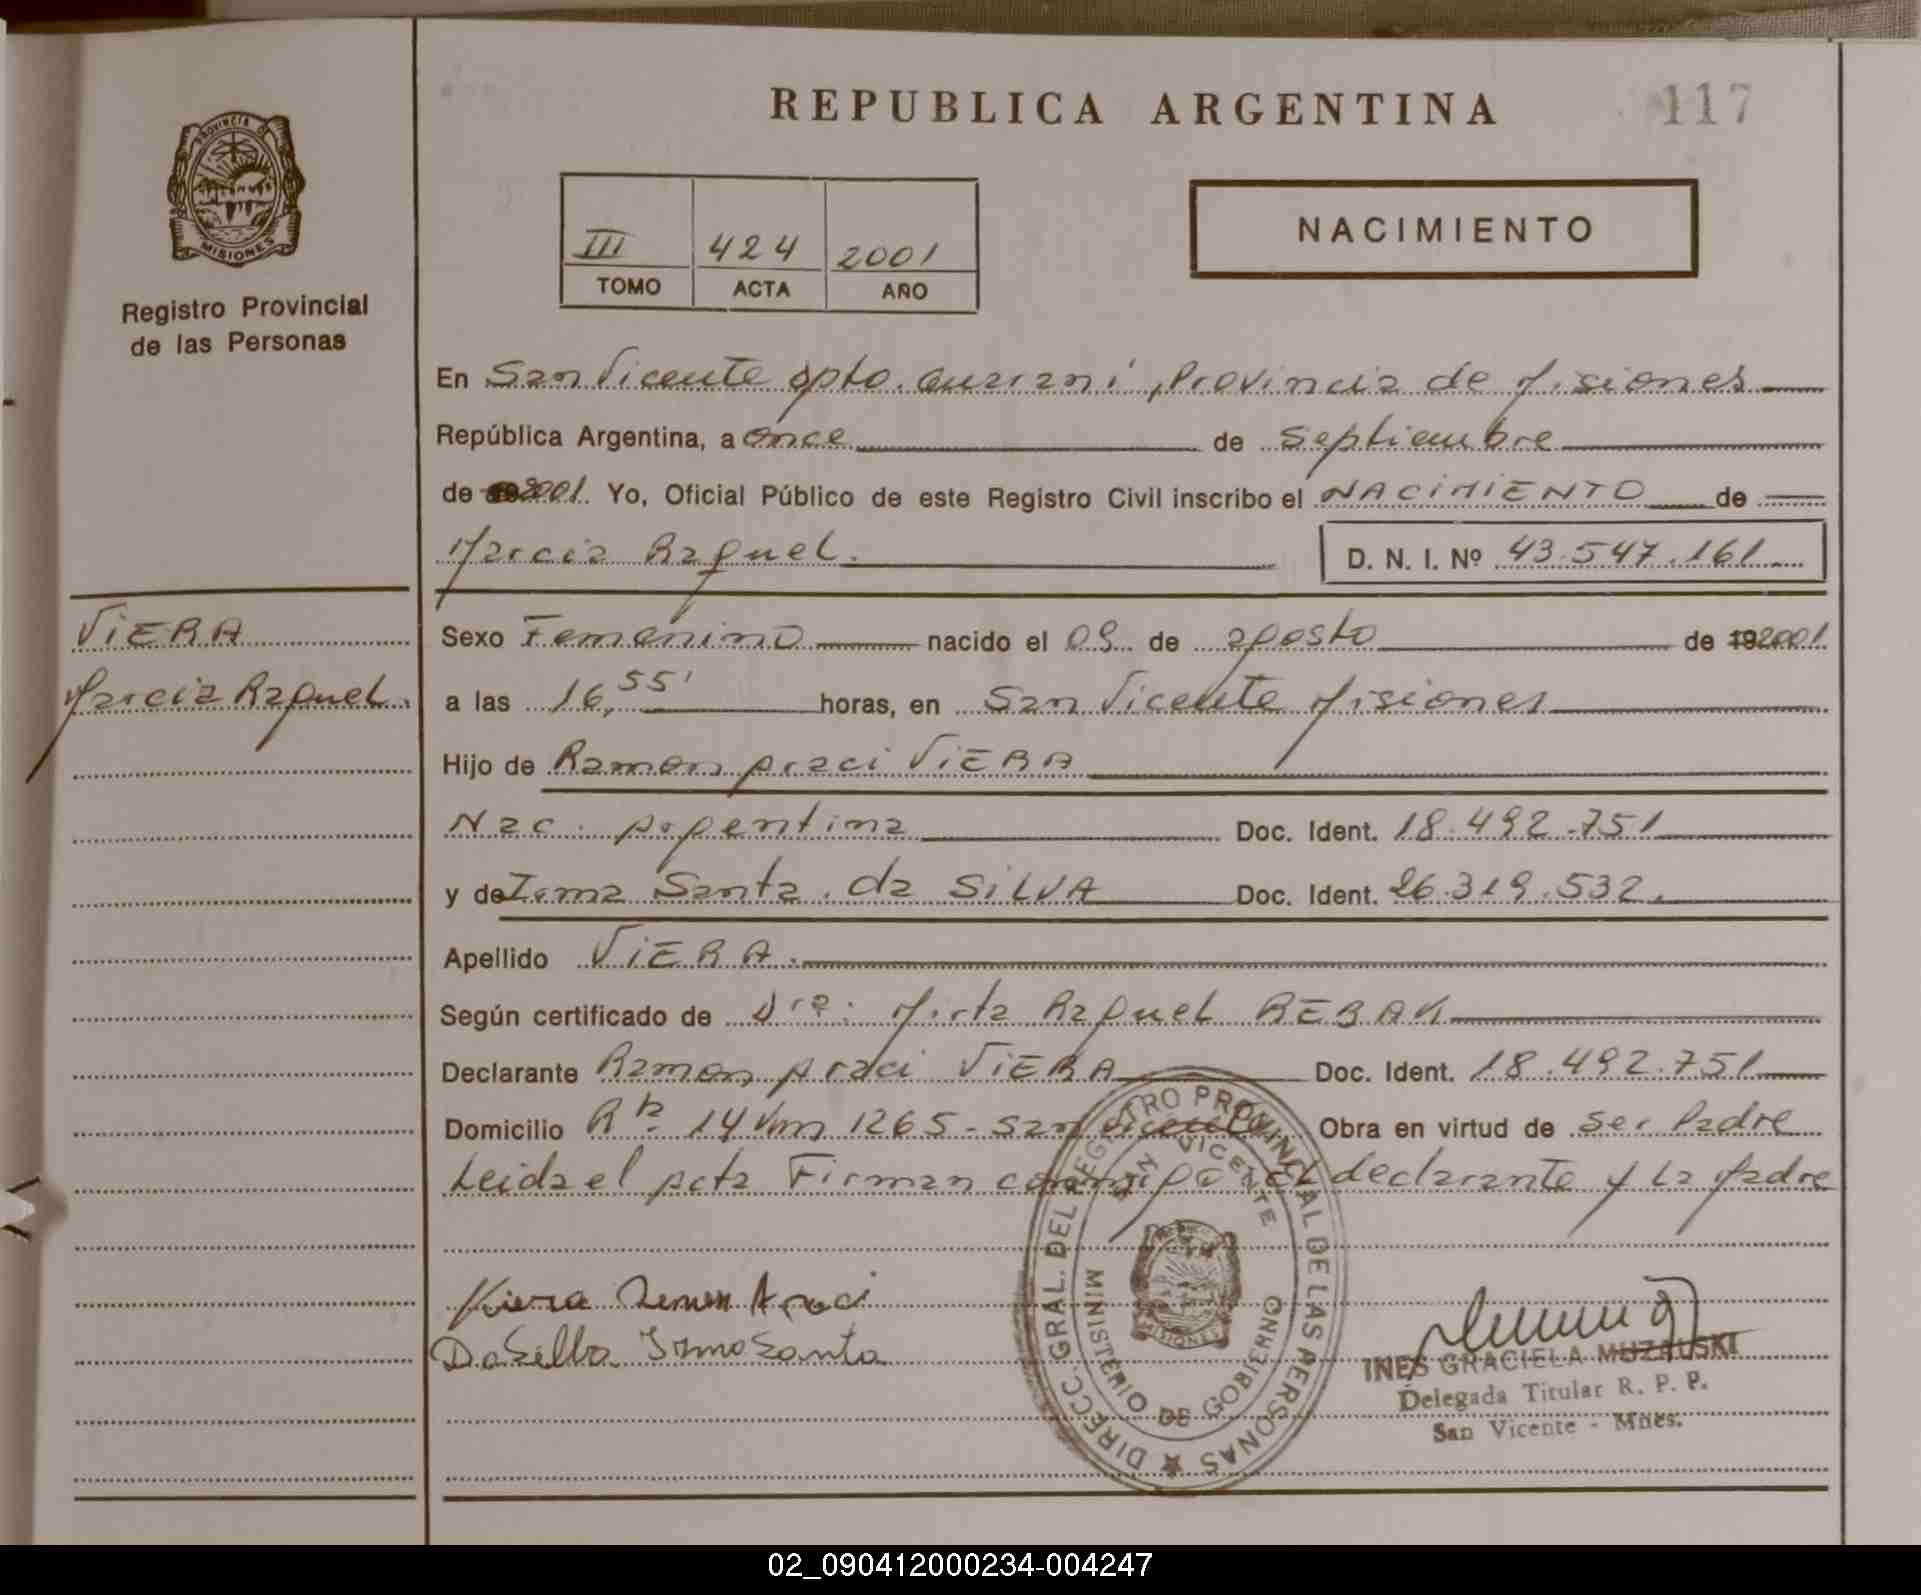 REPUBLICA ARGENTINA
117
PROVINCIA DE
MISIONES
Registro Provincial
de las Personas
III 424 2001
TOMO ACTA AÑO
NACIMIENTO
En San Vicente Dpto. Guarani, Provincia de Misiones
República Argentina, a once de Septiembre
de 19 2001. Yo, Oficial Público de este Registro Civil inscribo el NACIMIENTO de
Marcia Raquel.
D. N. I. Nº 43.547.161
VIERA
Marcia Raquel.
Sexo Femenino nacido el 09 de agosto de 19 2001
a las 16,55' horas, en San Vicente Misiones
Hijo de Ramon Araci VIERA
Nac. Argentina Doc. Ident. 18.492.751
y de Irma Santa da SILVA Doc. Ident. 26.319.532.
Apellido VIERA.
Según certificado de Dra. Mirta Raquel REBAK
Declarante Ramon Araci VIERA Doc. Ident. 18.492.751
Domicilio Rta. 14 Km 1265 - San Vicente Obra en virtud de ser Padre
Leida el Acta Firman conmigo el declarante y la Madre
Viera Ramon Araci
Da Silba Irma Santa
DIRECC. GRAL. DEL REGISTRO PROVINCIAL DE LAS PERSONAS
SAN VICENTE
MINISTERIO DE GOBIERNO
MISIONES
INES GRACIELA MUZALSKI
Delegada Titular R. P. P.
San Vicente - Mnes.
02_090412000234-004247